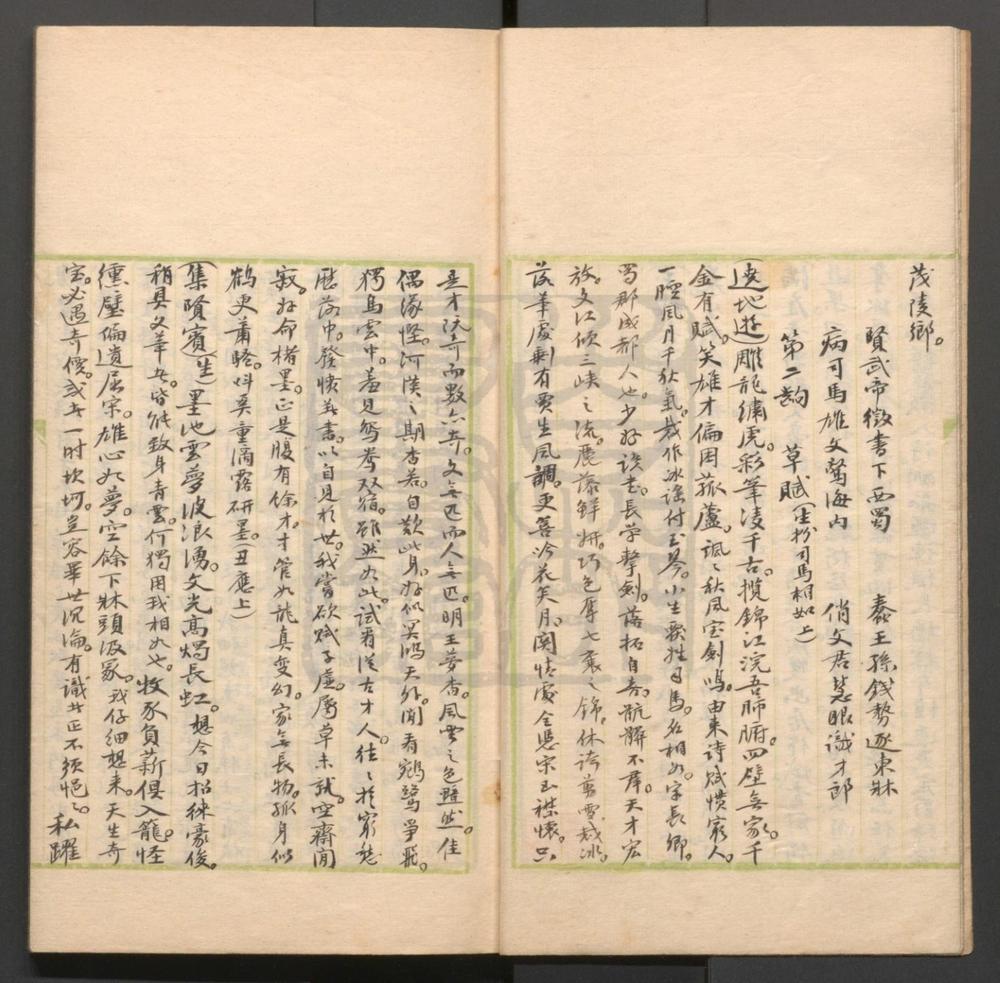 茂陵鄉。
賢武帝徵書下西蜀　蠢王孫錢勢逐東牀
病司馬雄文驚海內　俏文君慧眼識才郎
第二齣　草賦（生扮司馬相如上）
（遶地遊）雕龍繡虎。彩筆凌千古。攬錦江浣吾肺腑。四壁無家。千
金有賦。笑雄才偏困菰蘆。颯颯秋風宝劍鳴。由來詩賦慣窮人。
一腔風月千秋氣。幾作冰謠付玉琴。小生覆姓司馬。名相如。字長卿。
蜀郡成都人也。少好讀書。長学擊劍。落拓自喜。骯髒不羣。天才宏
放。文江傾三峽之流。麗藻鮮妍。巧色奪七襄之錦。休誇剪雪裁冰。
落筆處剩有賈生風調。更喜吟花笑月。関情處全慿宋玉襟懷。只
是才既奇而數亦奇。文無匹而人無匹。明王夢杳。風雲之色黯然。佳
偶緣慳。河漢之期杳若。自歎此身。好似冥鴻天外。閒看鵷鷺爭飛。
獨鳥雲中。羞見鴛鴦双宿。雖然如此。試看從古才人。往往於窮愁
歷落中。發憤著書。以自見於世。我嘗欲賦子虛。屬草未就。空齋閒
寂。好命楮墨。正是腹有餘才。才管如龍真变幻。家無長物。孤身似
鶴更蕭騷。科奚童滴露研墨。（丑應上）
（集賢賓）（生）墨池雲夢波浪湧。文光高燭長虹。想今日招徠豪俊。
稍具文華者。皆能致身青雲。何獨困我相如也。牧豕負薪俱入籠。怪
纁璧偏遺屈宋。雄心如夢。空餘下牀頭淚冢。我仔細想來。天生奇
宝。必遇奇價。或者一時坎坷。豈容畢世沉淪。有識者正不須悒悒。私躍